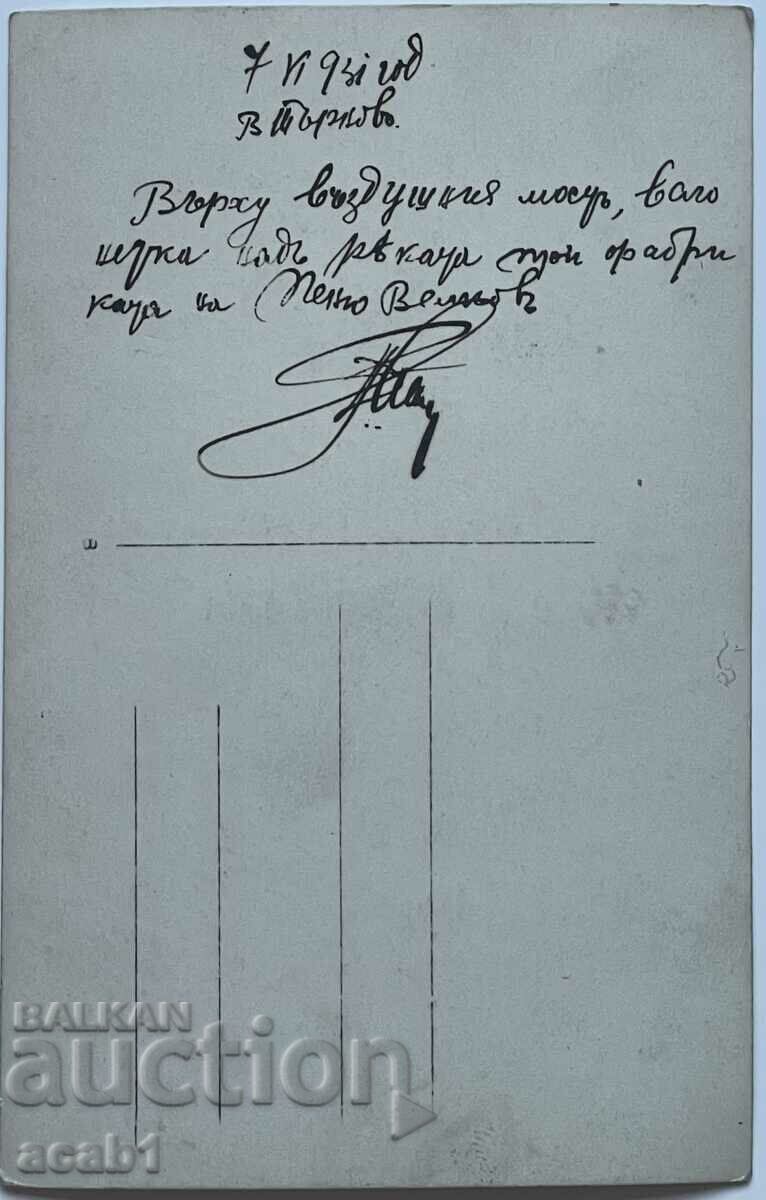 7 VI 931 год
В Търново.
Върху въздушния мостъ,
надъ рѣката при фабри
ката на Пенчо Велковъ
BALKAN
auction
acab1